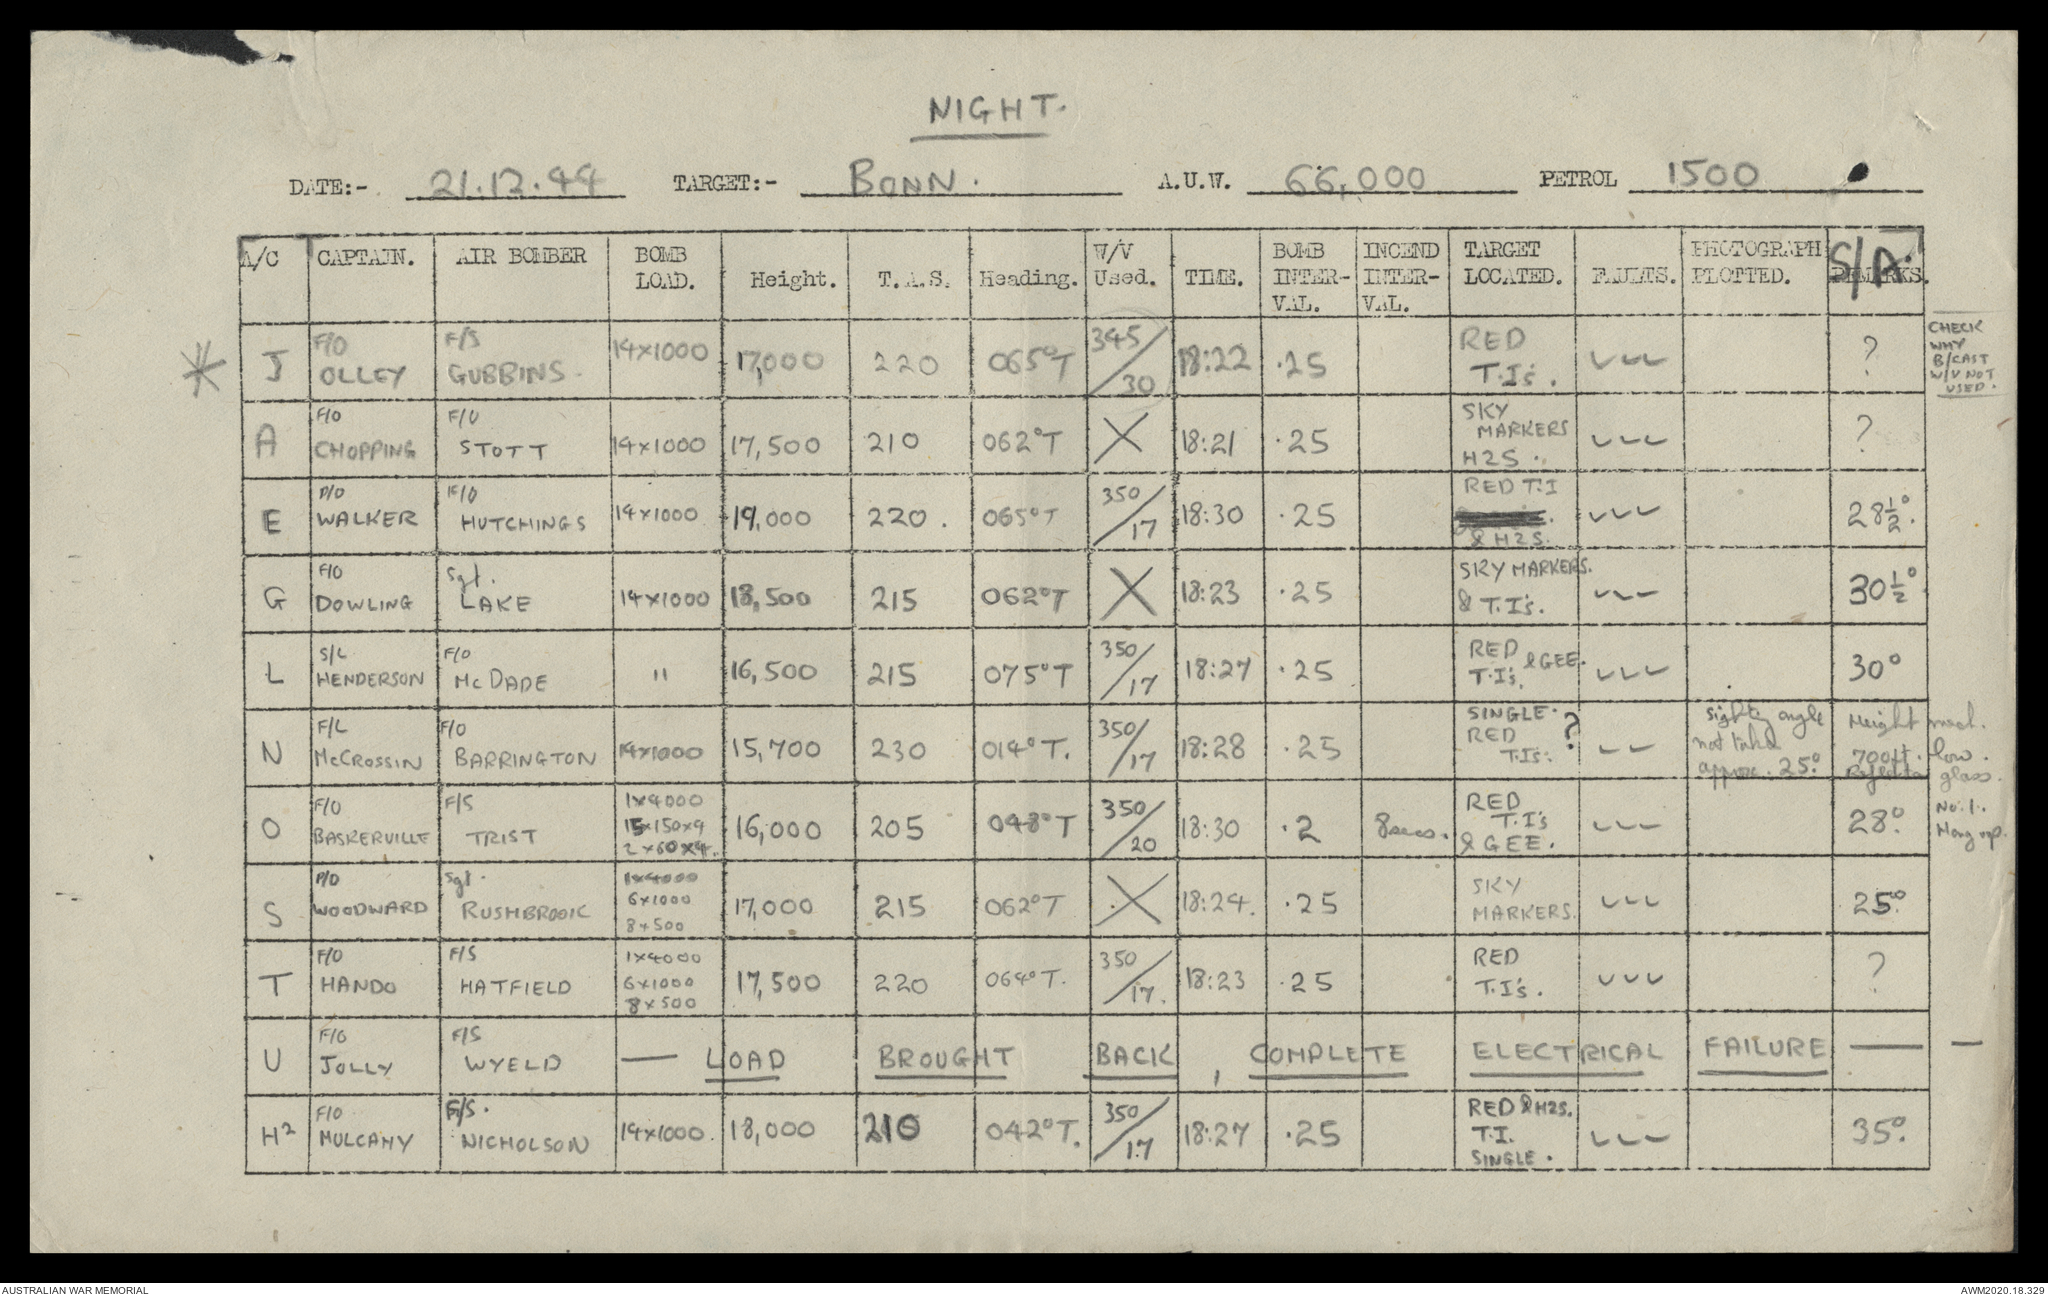 NIGHT.
DATE:- 21.12.44 TARGET:- BONN. A.U.W. 66,000 PETROL 1500
A/C CAPTAIN. AIR BOMBER BOMB LOAD. Height. T.A.S. Heading. W/V Used. TIME. BOMB INTER-VAL. INCEND INTER-VAL. TARGET LOCATED. FAULTS. PHOTOGRAPH PLOTTED. REMARKS. S/A.
* J F/O OLLEY F/S GUBBINS. 14x1000 17,000 220 065°T 345/30 18:22 .25 RED T.I's. ✓✓✓ ? CHECK WHY B/CAST W/V NOT USED.
A F/O CHOPPING F/O STOTT 14x1000 17,500 210 062°T X 18:21 .25 SKY MARKERS H2S. ✓✓✓ ?
E P/O WALKER F/O HUTCHINGS 14x1000 19,000 220. 065°T 350/17 18:30 .25 RED T.I & H2S. ✓✓✓ 28½°.
G F/O DOWLING Sgt. LAKE 14x1000 18,500 215 062°T X 18:23 .25 SKY MARKERS. & T.I's. ✓✓✓ 30½°
L S/L HENDERSON F/O McDADE " 16,500 215 075°T 350/17 18:27 .25 RED T.I's. & GEE. ✓✓✓ 30°
N F/L McCROSSIN F/O BARRINGTON 14x1000 15,700 230 014°T. 350/17 18:28 .25 SINGLE. RED T.I's. ? ✓✓ angle not taken approx. 25° Height 700ft. low. glass.
O F/O BASKERVILLE F/S TRIST 1x4000 15x150x4 2x60x4. 16,000 205 048°T 350/20 18:30 .2 8secs. RED T.I's & GEE. ✓✓✓ 28°. No.1. Hang up.
S P/O WOODWARD Sgt. RUSHBROOK 1x4000 6x1000 8x500 17,000 215 062°T X 18:24. .25 SKY MARKERS. ✓✓✓ 25°.
T F/O HANDO F/S HATFIELD 1x4000 6x1000 8x500 17,500 220 064°T. 350/17. 18:23 .25 RED T.I's. ✓✓✓ ?
U F/O JOLLY F/S WYELD — LOAD BROUGHT BACK, COMPLETE ELECTRICAL FAILURE — —
H² F/O MULCAHY F/S. NICHOLSON 14x1000. 18,000 210 042°T. 350/17 18:27 .25 RED & H2S. T.I. SINGLE. ✓✓✓ 35°.
AUSTRALIAN WAR MEMORIAL AWM2020.18.329